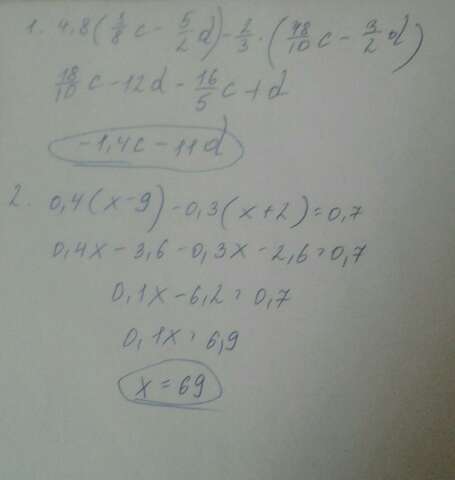 1. 4,8(3/8 c - 5/2 d) - 2/3 · (48/10 c - 3/2 d)
18/10 c - 12d - 16/5 c + d
-1,4c - 11d
2. 0,4(x-9) - 0,3(x+2) = 0,7
0,4x - 3,6 - 0,3x - 2,6 = 0,7
0,1x - 6,2 = 0,7
0,1x = 6,9
x = 69